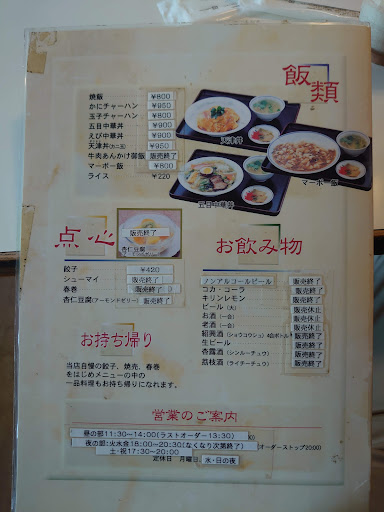 飯類
焼飯 ¥800
かにチャーハン ¥950
玉子チャーハン ¥800
五目中華丼 ¥900
えび中華丼 ¥900
天津丼(カニ玉) ¥950
牛肉あんかけ御飯 販売終了
マーボー飯 ¥800
ライス ¥220
天津丼
マーボー飯
五目中華丼
点心
販売終了
杏仁豆腐
餃子 ¥420
シューマイ 販売終了
春巻 販売終了
杏仁豆腐(アーモンドゼリー) 販売終了
お飲み物
ノンアルコールビール 販売終了
コカ・コーラ 販売終了
キリンレモン 販売終了
ビール(大) 販売休止
お酒(一合) 販売休止
老酒(一合) 販売休止
紹興酒(ショウコウシュ)4合ボトル 販売終了
生ビール 販売終了
杏露酒(シンルーチュウ) 販売終了
茘枝酒(ライチーチュウ) 販売終了
お持ち帰り
当店自慢の餃子、焼売、春巻
をはじめメニューの中の
一品料理もお持ち帰りになれます。
営業のご案内
昼の部11:30~14:00(ラストオーダー13:30)
夜の部:火水金18:00~20:30(なくなり次第終了)
(オーダーストップ20:00)
土・祝17:30~20:00
定休日 月曜日、水・日の夜